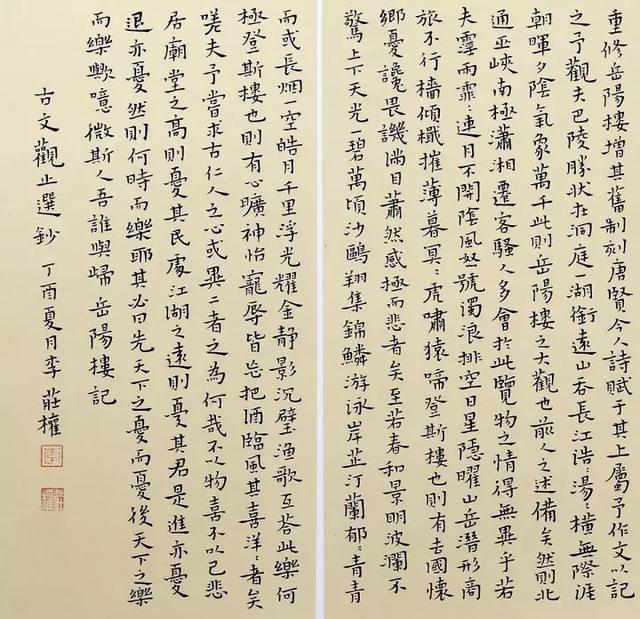 重修岳陽樓增其舊制刻唐賢今人詩賦于其上屬予作文以記
之予觀夫巴陵勝狀在洞庭一湖銜遠山吞長江浩〻湯〻橫無際涯
朝暉夕陰氣象萬千此則岳陽樓之大觀也前人之述備矣然則北
通巫峽南極瀟湘遷客騷人多會於此覽物之情得無異乎若
夫霪雨霏〻連月不開陰風怒號濁浪排空日星隱曜山岳潛形商
旅不行檣傾檝摧薄暮冥〻虎嘯猿啼登斯樓也則有去國懷
鄉憂讒畏譏滿目蕭然感極而悲者矣至若春和景明波瀾不
驚上下天光一碧萬頃沙鷗翔集錦鱗游泳岸芷汀蘭郁〻青青
而或長烟一空皓月千里浮光耀金靜影沉璧漁歌互荅此樂何
極登斯樓也則有心曠神怡寵辱皆忘把酒臨風其喜洋〻者矣
嗟夫予嘗求古仁人之心或異二者之為何哉不以物喜不以己悲
居廟堂之高則憂其民處江湖之遠則憂其君是進亦憂
退亦憂然則何時而樂耶其必曰先天下之憂而憂後天下之樂
而樂歟噫微斯人吾誰與歸岳陽樓記
古文觀止選鈔 丁酉夏月李莊權